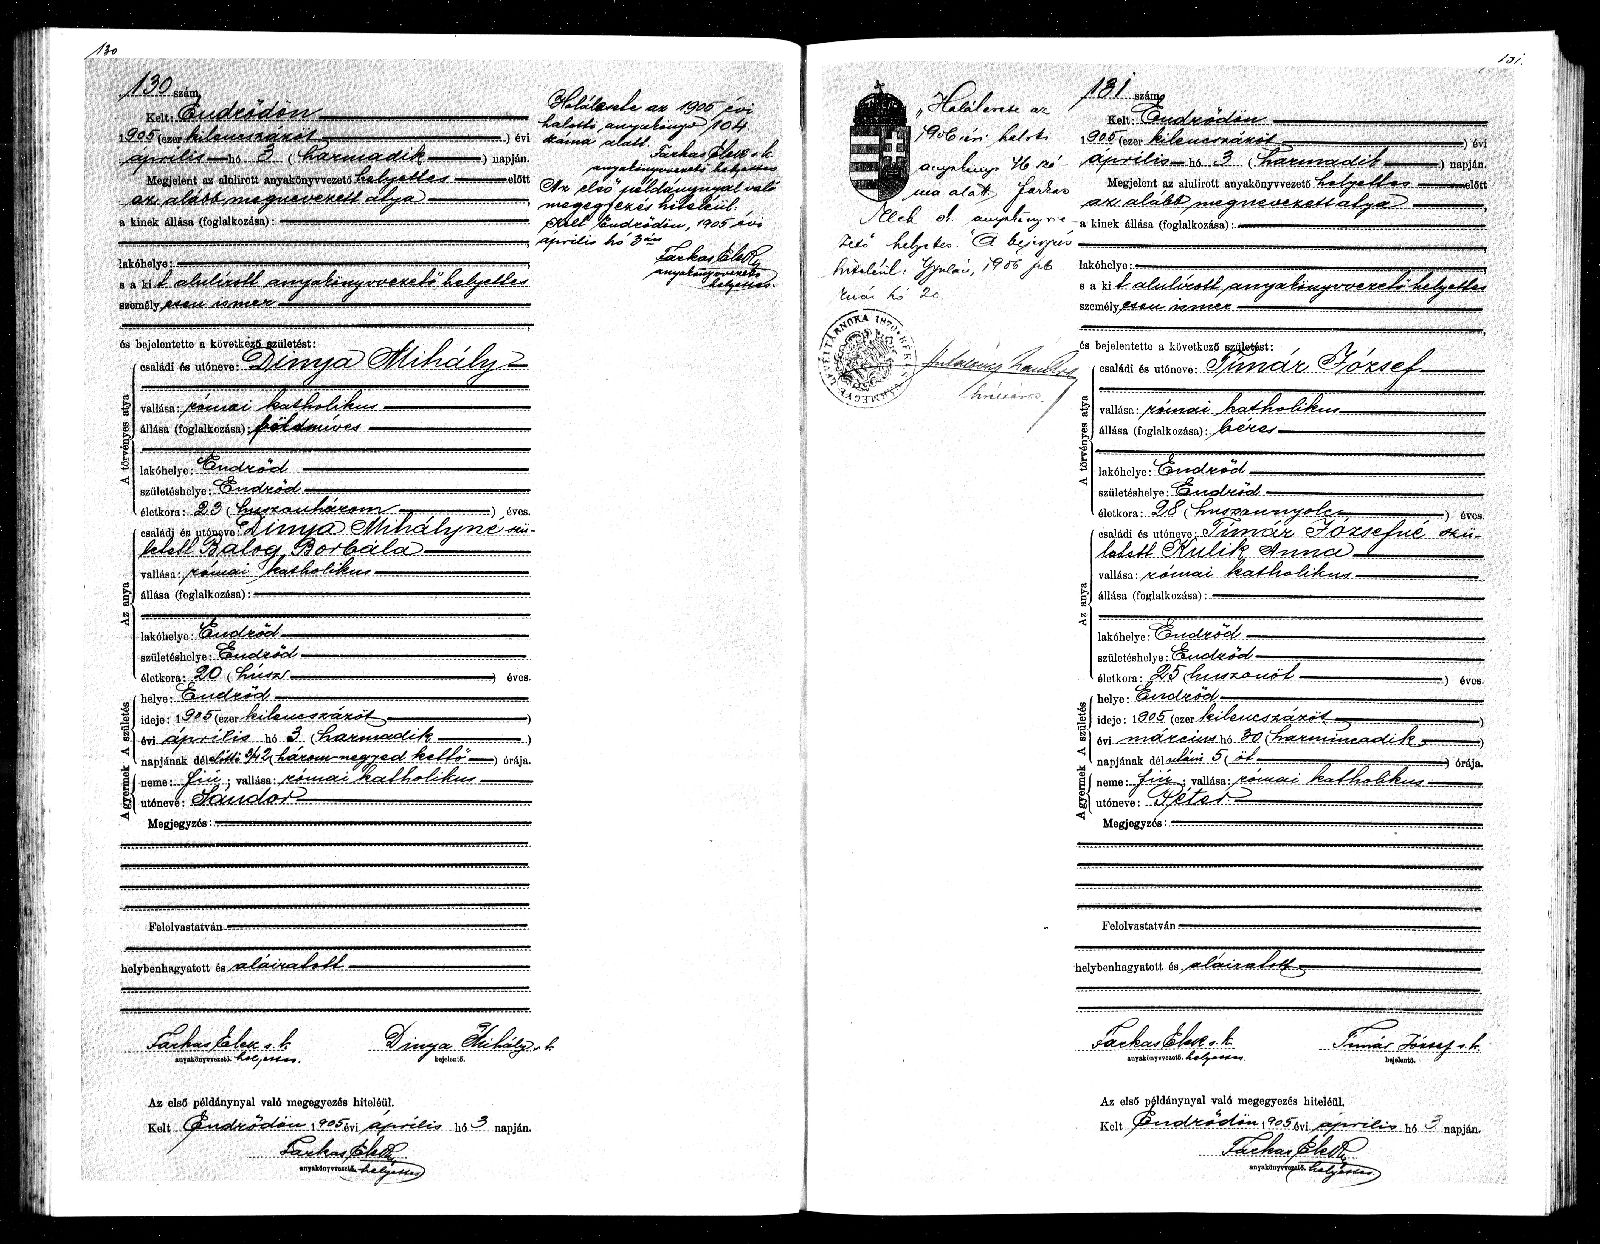 130
130 szám
Kelt: Endrődön
1905 (ezer kilencszázöt) évi
április hó 3 (harmadik) napján.
Megjelent az alulirott anyakönyvvezető helyettes előtt
az alább megnevezett atya
a kinek állása (foglalkozása):
lakóhelye:
s a kit alulírott anyakönyvvezető helyettes
személyesen ismer
és bejelentette a következő születést:
A törvényes atya
családi és utóneve: Dinya Mihály
vallása: római katholikus
állása (foglalkozása): földmíves
lakóhelye: Endrőd
születéshelye: Endrőd
életkora: 23 (huszonhárom) éves.
Az anya
családi és utóneve: Dinya Mihályné szü-
letett Balog Borbála
vallása: római katholikus
állása (foglalkozása):
lakóhelye: Endrőd
születéshelye: Endrőd
életkora: 20 (húsz) éves.
A születés
helye: Endrőd
ideje: 1905 (ezer kilencszázöt)
évi április hó 3 (harmadik)
napjának délelőtti 3/4 2 (háromnegyed kettő) órája.
A gyermek
neme: fiú; vallása: római katholikus
utóneve: Sándor
Megjegyzés:
Felolvastatván
helybenhagyatott és aláiratott
Farkas Elek s.k. Dinya Mihály s.k.
anyakönyvvezető. helyettes. bejelentő.
Az első példánynyal való megegyezés hiteléül.
Kelt Endrődön 1905 évi április hó 3 napján.
Farkas Elek
anyakönyvvezető. helyettes
Halálesete az 1905 évi
halotti anyakönyv 104
száma alatt.
Farkas Elek s.k.
anyakönyvvezető helyettes
Az első példánynyal való
megegyezés hiteléül.
Kelt Endrődön, 1905 évi
április hó 3án
Farkas Elek
anyakönyvvezető
helyettes.
131.
"Halálesete az
1906 évi halotti
anyakönyv 46 szá
ma alatt. Farkas
Elek s.k. anyakönyvve-
zető helyettes." A bejegyzés
hiteléül. Gyulán, 1906 feb
ruár hó 20.
131 szám
Kelt: Endrődön
1905 (ezer kilencszázöt) évi
április hó 3 (harmadik) napján.
Megjelent az alulirott anyakönyvvezető helyettes előtt
az alább megnevezett atya
a kinek állása (foglalkozása):
lakóhelye:
s a kit alulírott anyakönyvvezető helyettes
személyesen ismer
és bejelentette a következő születést:
A törvényes atya
családi és utóneve: Tímár József
vallása: római katholikus
állása (foglalkozása): béres
lakóhelye: Endrőd
születéshelye: Endrőd
életkora: 28 (huszonnyolc) éves.
Az anya
családi és utóneve: Tímár Józsefné szü-
letett Kulik Anna
vallása: római katholikus
állása (foglalkozása):
lakóhelye: Endrőd
születéshelye: Endrőd
életkora: 25 (huszonöt) éves.
A születés
helye: Endrőd
ideje: 1905 (ezer kilencszázöt)
évi március hó 30 (harmincadik)
napjának délutáni 5 (öt) órája.
A gyermek
neme: fiú; vallása: római katholikus
utóneve: Péter
Megjegyzés:
Felolvastatván
helybenhagyatott és aláiratott
Farkas Elek s.k. Timár József s.k.
anyakönyvvezető. helyettes bejelentő.
Az első példánynyal való megegyezés hiteléül.
Kelt Endrődön 1905 évi április hó 3 napján.
Farkas Elek
anyakönyvvezető. helyettes.